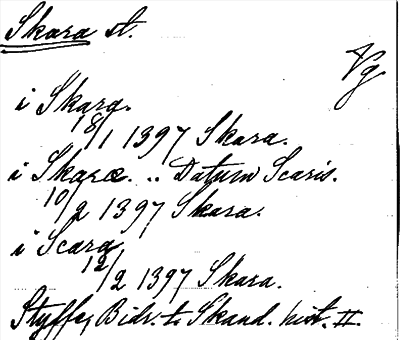 Skara st.
Vg
i Skara.
18/1 1397 Skara.
i Skaræ. .. Datum Scaris.
10/2 1397 Skara.
i Scara
12/2 1397 Skara.
Styffe, Bidr. t. Skand. hist. II.